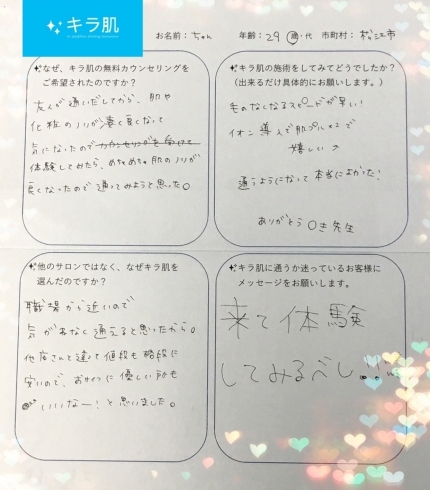 キラ肌
お名前：ちゃん 年齢：29 歳・代 市町村：松江市
なぜ、キラ肌の無料カウンセリングを
ご希望されたのですか？
友人が通いだしてから、肌や
化粧のノリが凄く良くなって
気になったのでカウンセリングを受けて
体験してみたら、めちゃめちゃ肌のノリが
良くなったので通ってみようと思った。
キラ肌の施術をしてみてどうでしたか？
（出来るだけ具体的にお願いします。）
毛のなくなるスピードが早い！
イオン導入で肌プルプルで
嬉しい♪
通うようになって本当によかった！
ありがとう○き先生
他のサロンではなく、なぜキラ肌を
選んだのですか？
職場から近いので
気がねなく通えると思ったから。
他店さんと違って値段も格段に
安いので、おサイフに優しい所も
いいなー！と思いました。
キラ肌に通うか迷っているお客様に
メッセージをお願いします。
来て体験
してみるべし!!!